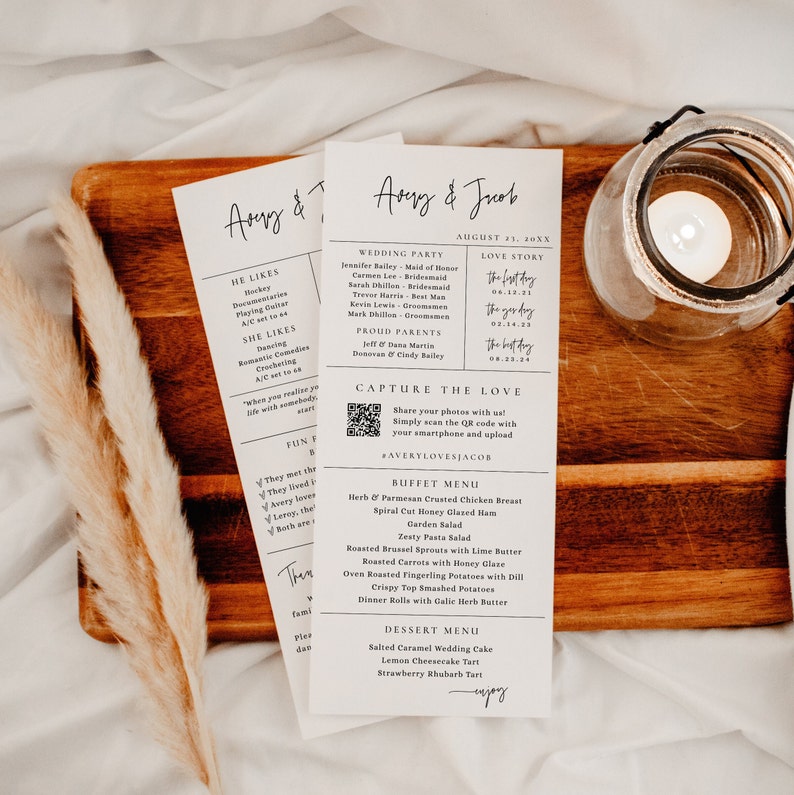 Avery & J
HE LIKES
Hockey
Documentaries
Playing Guitar
A/C set to 64
SHE LIKES
Dancing
Romantic Comedies
Crocheting
A/C set to 68
"When you realize yo
life with somebody,
start
FUN F
They met thr
They lived i
Avery loves
Leroy, thei
Both are
Than
W
famil
Please
dan
Avery & Jacob
AUGUST 23, 20XX
WEDDING PARTY
Jennifer Bailey - Maid of Honor
Carmen Lee - Bridesmaid
Sarah Dhillon - Bridesmaid
Trevor Harris - Best Man
Kevin Lewis - Groomsmen
Mark Dhillon - Groomsmen
PROUD PARENTS
Jeff & Dana Martin
Donovan & Cindy Bailey
LOVE STORY
the first day
06.12.21
the yes day
02.14.23
the best day
08.23.24
CAPTURE THE LOVE
Share your photos with us!
Simply scan the QR code with
your smartphone and upload
#AVERYLOVESJACOB
BUFFET MENU
Herb & Parmesan Crusted Chicken Breast
Spiral Cut Honey Glazed Ham
Garden Salad
Zesty Pasta Salad
Roasted Brussel Sprouts with Lime Butter
Roasted Carrots with Honey Glaze
Oven Roasted Fingerling Potatoes with Dill
Crispy Top Smashed Potatoes
Dinner Rolls with Galic Herb Butter
DESSERT MENU
Salted Caramel Wedding Cake
Lemon Cheesecake Tart
Strawberry Rhubarb Tart
enjoy